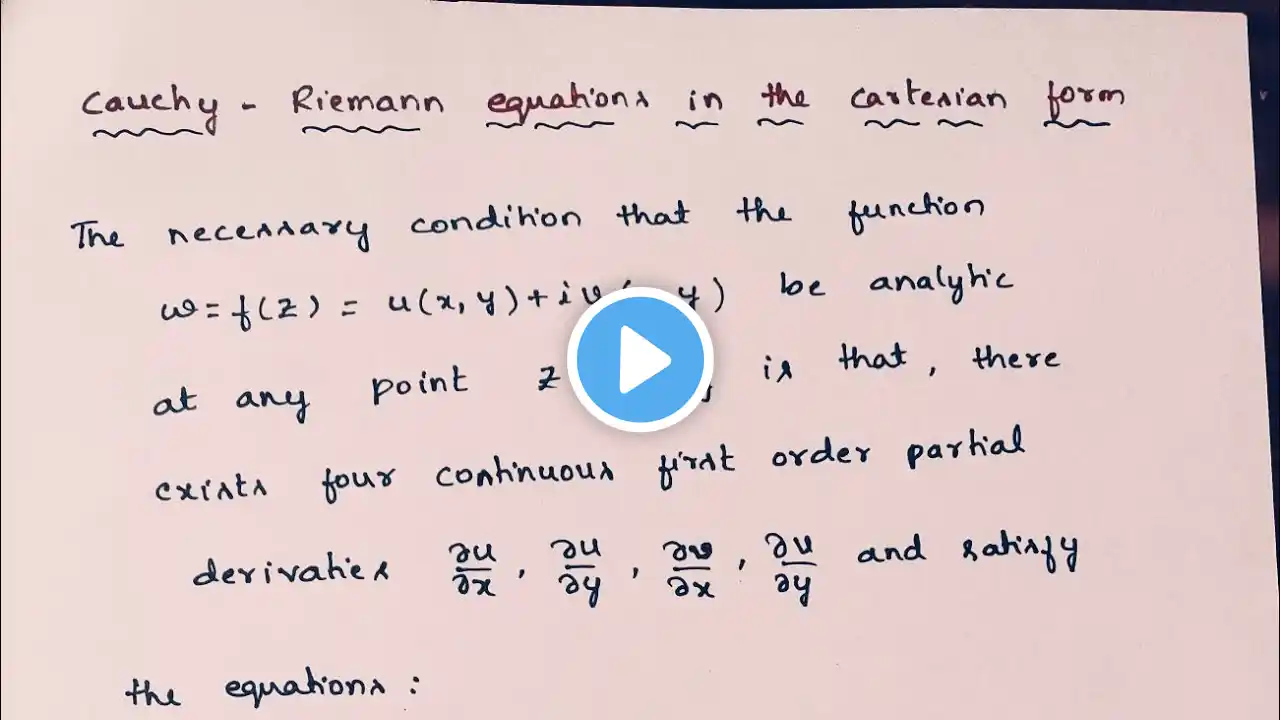 Cauchy - Riemann equations in the cartesian form
The necessary condition that the function
w = f(z) = u(x, y) + i v( y) be analytic
at any point z is that, there
exists four continuous first order partial
derivaties ∂u/∂x, ∂u/∂y, ∂v/∂x, ∂v/∂y and satisfy
the equations: